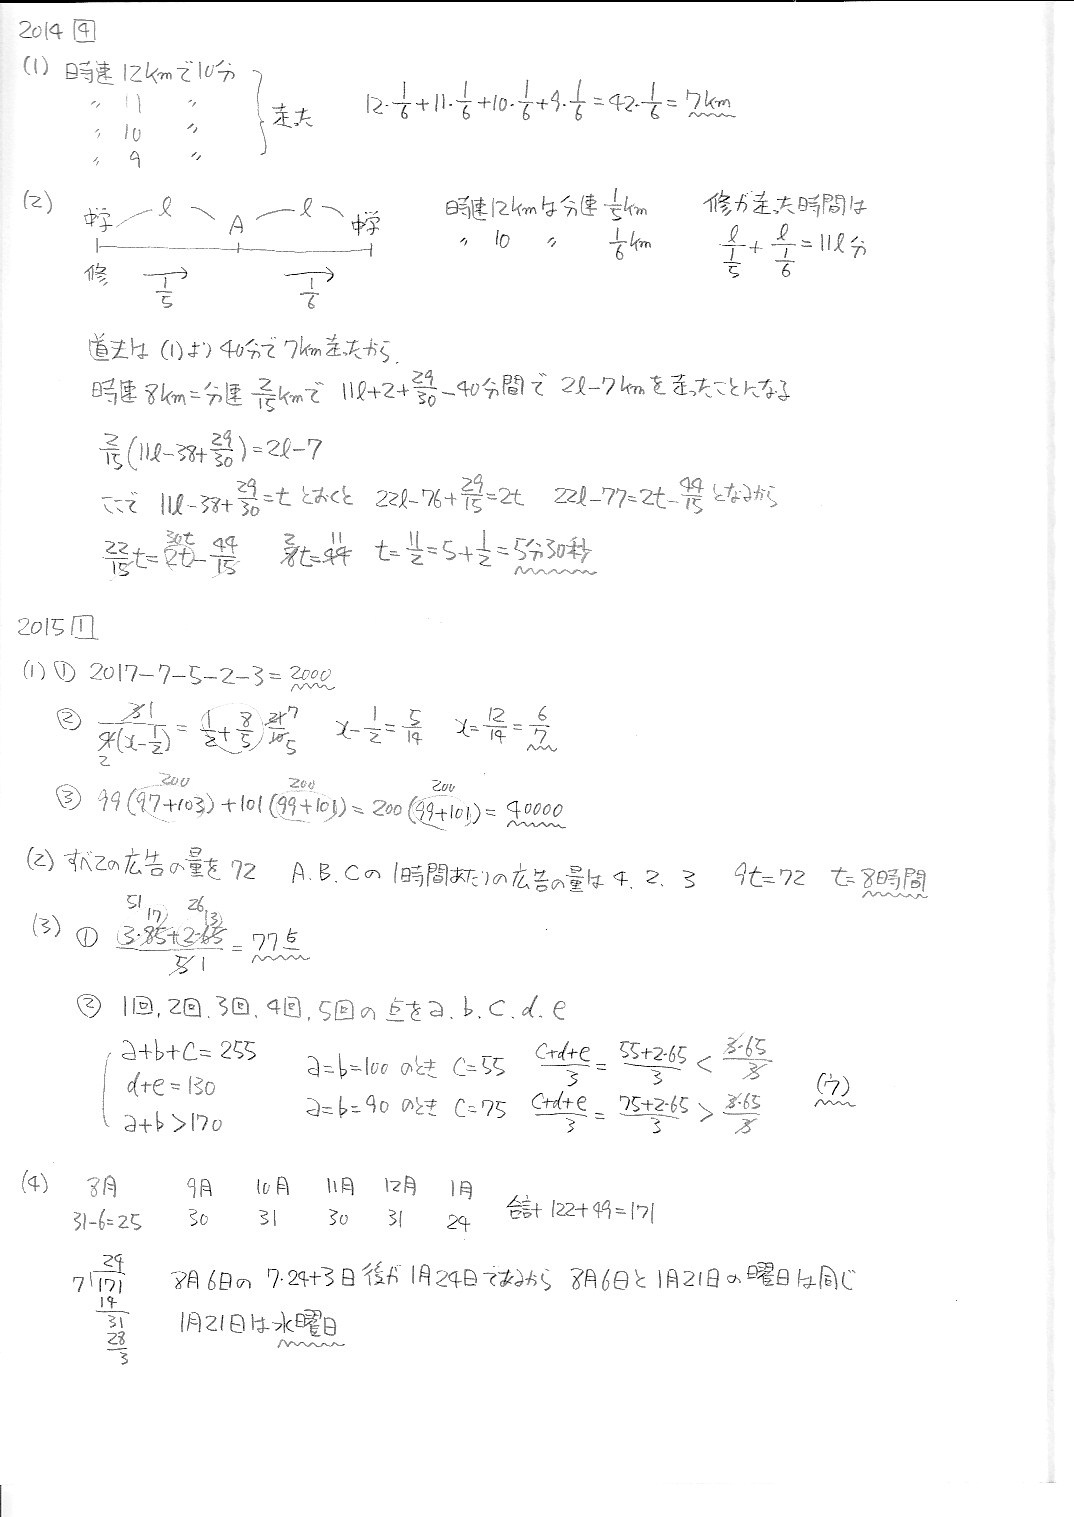 2014 4
(1) 時速12kmで10分
〃 11 〃
〃 10 〃
〃 9 〃
走った
12·1/6+11·1/6+10·1/6+9·1/6=42·1/6=7km
(2)
中学 l A l 中学
修 1/5 1/6
時速12kmは分速1/5km
〃 10 〃 1/6km
修が走った時間は
l/(1/5)+l/(1/6)=11l分
道夫は(1)より40分で7km走ったから、
時速8km=分速2/15kmで 11l+2+29/30-40分間で 2l-7kmを走ったことになる
2/15(11l-38+29/30)=2l-7
ここで 11l-38+29/30=tとおくと 22l-76+29/15=2t 22l-77=2t-44/15となるから
22/15t=2t-44/15 30t 8t=44 2 11 t=11/2=5+1/2=5分30秒
2015 1
(1) ① 2017-7-5-2-3=2000
② 3 1/4(x-1/2) 2 =(1/2+8/5)21/10 7 5 x-1/2=5/14 x=12/14=6/7
③ 99(97+103)+101(99+101)=200(99+101)=40000
200 200 200
(2) すべての広告の量を72 A.B.Cの1時間あたりの広告の量は4.2.3 9t=72 t=8時間
(3) ① (3·85+2·65)/5=77点
51 17 26 13 1
② 1回,2回.3回.4回,5回の点をa.b.c.d.e
a+b+c=255
d+e=130
a+b>170
a=b=100のとき c=55 (c+d+e)/3=(55+2·65)/3<(3·65)/3
a=b=90のとき c=75 (c+d+e)/3=(75+2·65)/3>(3·65)/3
(ウ)
(4) 8月 9月 10月 11月 12月 1月
31-6=25 30 31 30 31 24 合計 122+49=171
24
7)171
14
31
28
3
8月6日の 7·24+3日後が1月24日であるから 8月6日と1月21日の曜日は同じ
1月21日は水曜日